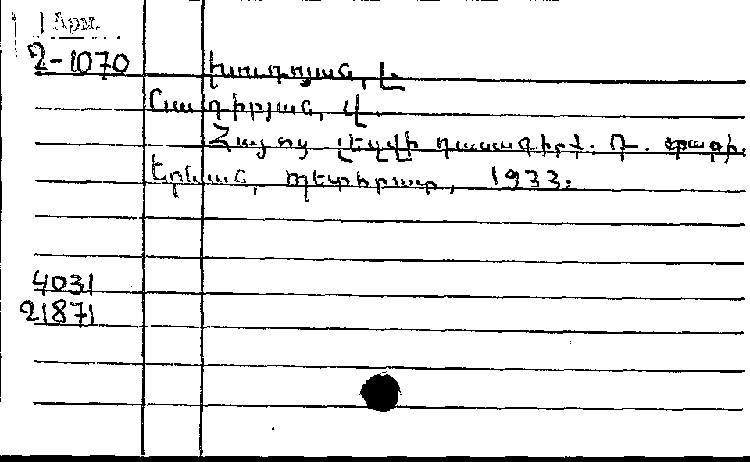 Арм.
2-1070
Խուդոյան, Լ.
Նազիրյան, Վ.
Հայոց լեզվի դասագիրք. Դ. տպագր.
Երևան, Պետհրատ, 1933.
4031
21871